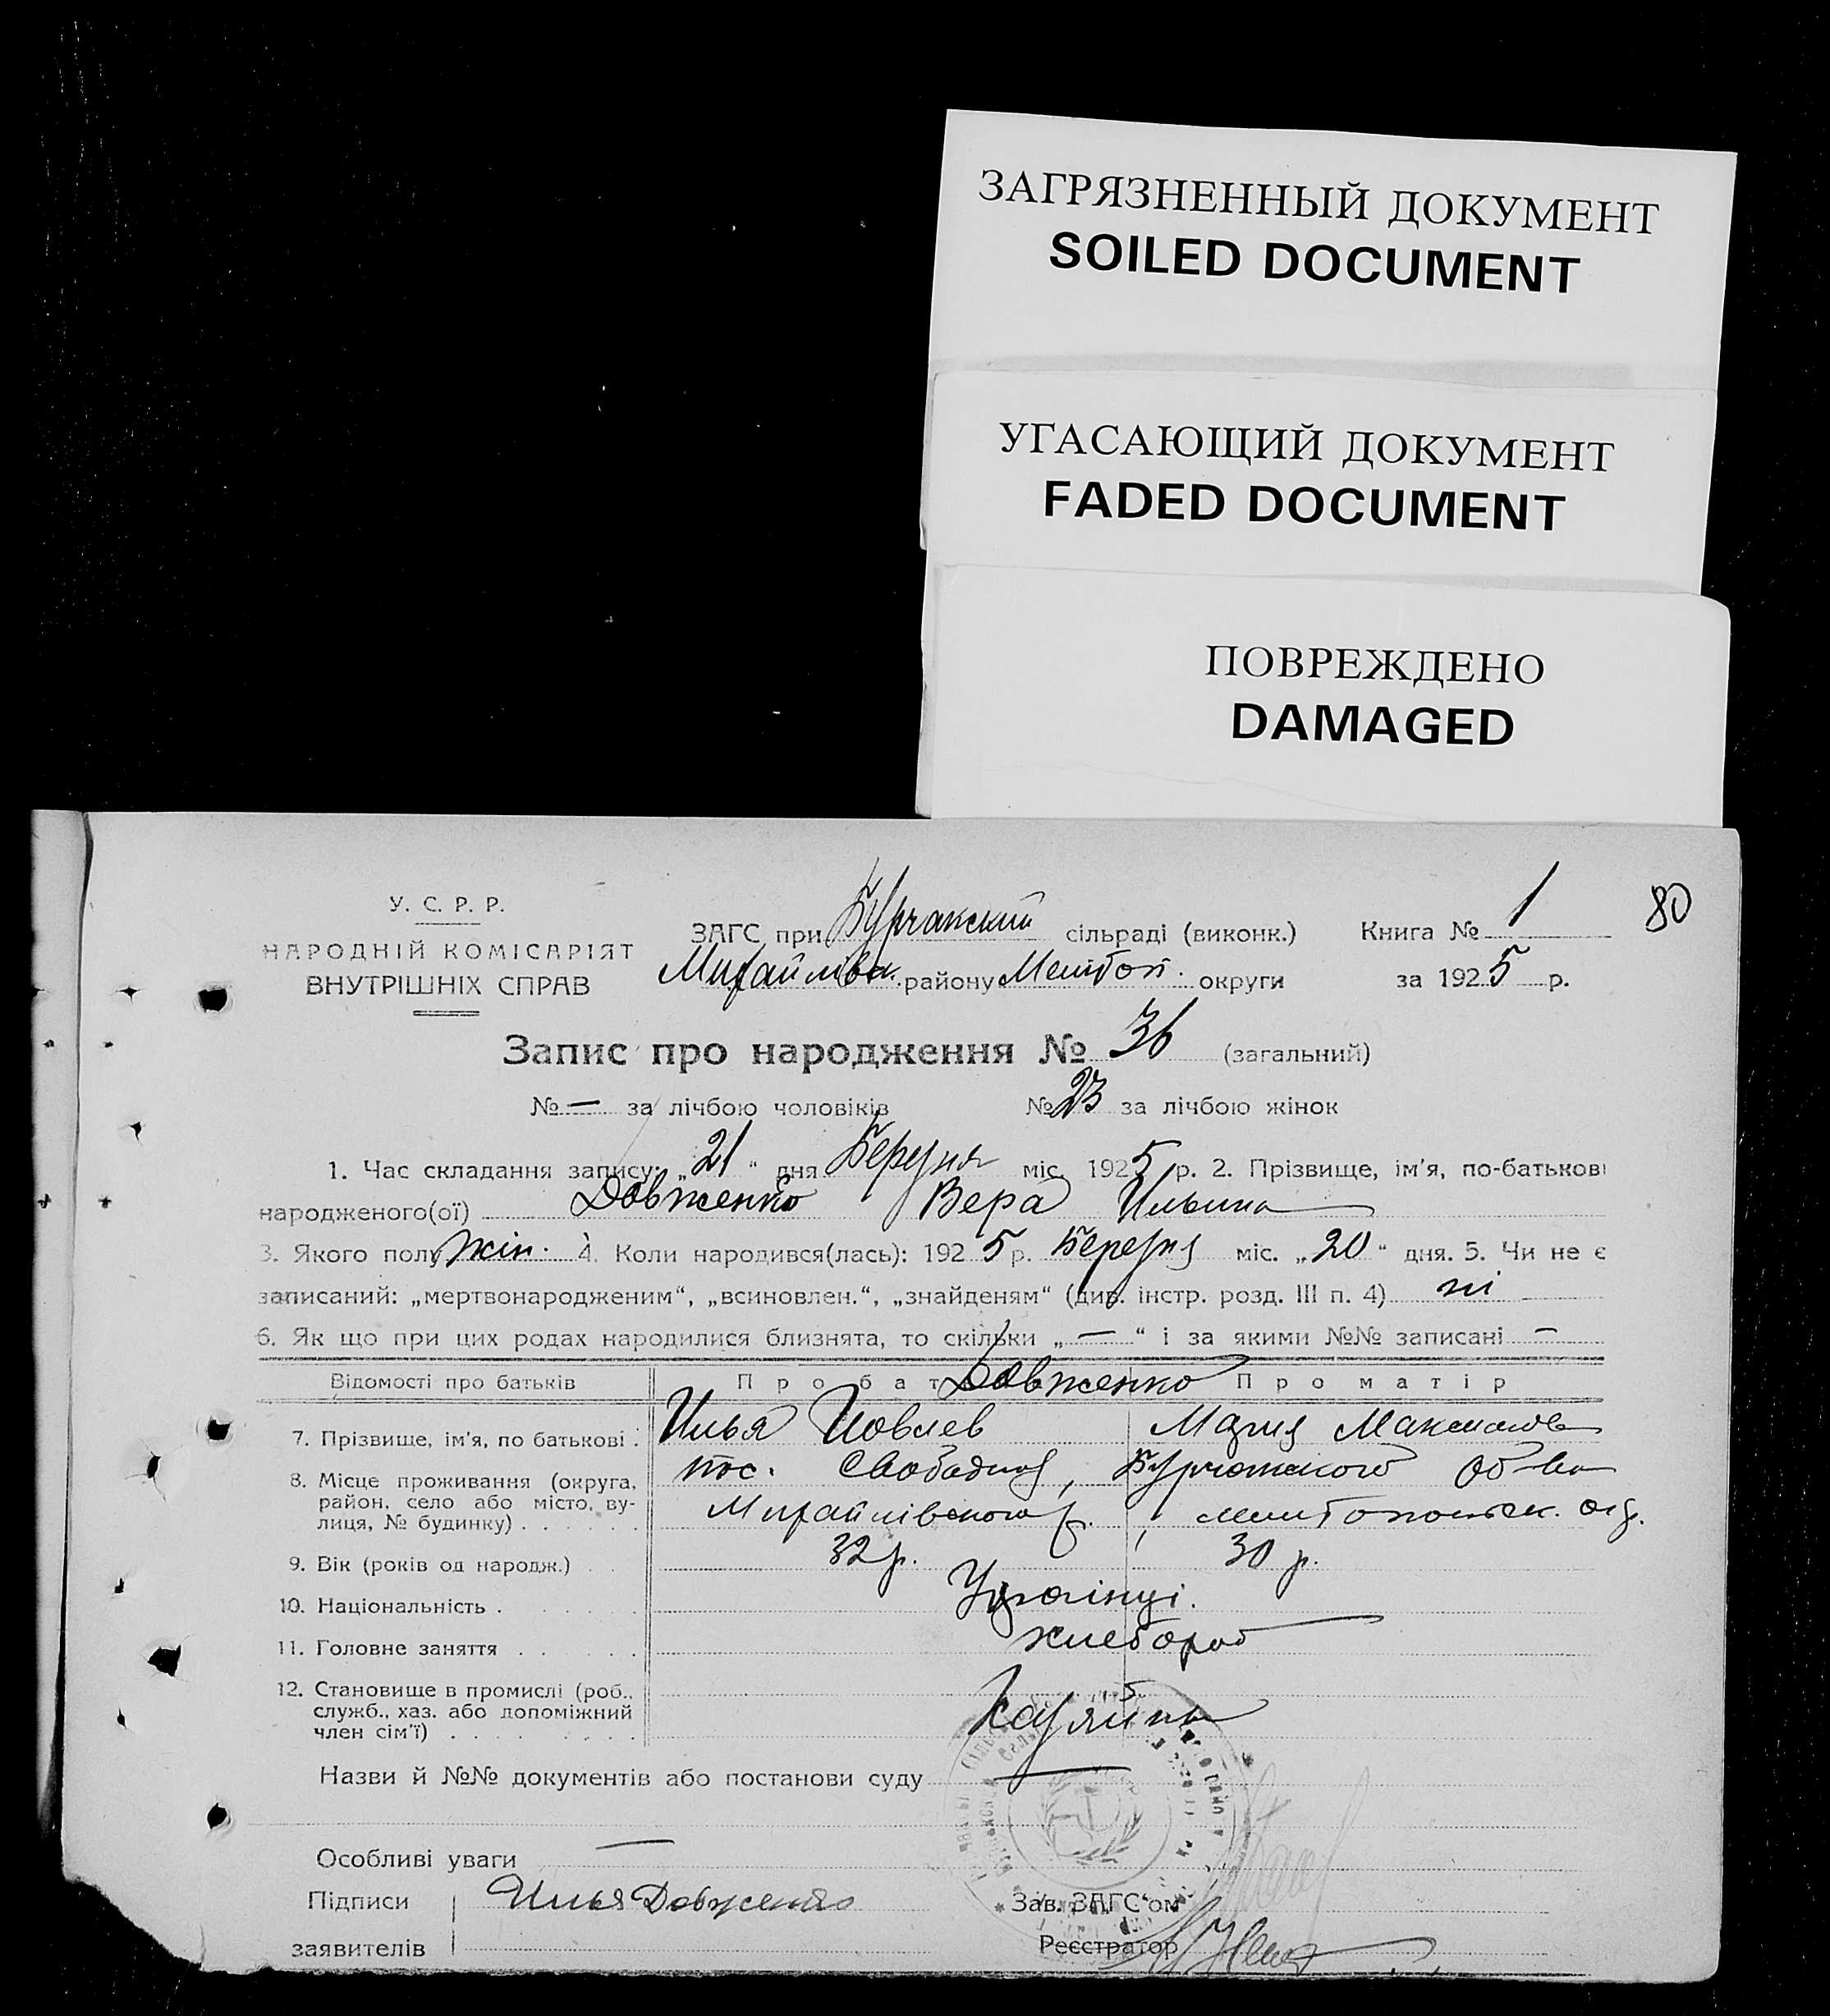 ЗАГРЯЗНЕННЫЙ ДОКУМЕНТ
SOILED DOCUMENT
УГАСАЮЩИЙ ДОКУМЕНТ
FADED DOCUMENT
ПОВРЕЖДЕНО
DAMAGED
80
У. С. Р. Р.
НАРОДНІЙ КОМІСАРІЯТ
ВНУТРІШНІХ СПРАВ
ЗАГС при Бурчакский сільраді (виконк.) Книга № 1
Михайлівск. району Мелітоп. округи за 1925 р.
Запис про народження № 36 (загальний)
№ — за лічбою чоловіків № 23 за лічбою жінок
1. Час складання запису: „21" дня Березня міс. 1925 р. 2. Прізвище, ім'я, по-батькові
народженого(ої) Довженко Вера Ильина
3. Якого полу жін. 4. Коли народився(лась): 1925 р. Березня міс. „20" дня. 5. Чи не є
записаний: „мертвонародженим", „всиновлен.", „знайденям" (див. інстр. розд. III п. 4) ні
6. Як що при цих родах народилися близнята, то скільки „—" і за якими №№ записані —
Відомості про батьків Про батька Про матір
Довженко
7. Прізвище, ім'я, по батькові : Илья Яковлев Мария Максимов
8. Місце проживання (округа, пос. Свободный, Бурчатского об-ва
район, село або місто, ву- Михайлівского р. Мелитопольск. окр.
лиця, № будинку)
9. Вік (років од народж.) 32 р. 30 р.
10. Національність Українці.
11. Головне заняття хлебороб
12. Становище в промислі (роб.,
служб., хаз. або допоміжний
член сім'ї)
Назви й №№ документів або постанови суду —
Особливі уваги —
Підписи Илья Довженко Зав. ЗАГС'ом
заявителів Реєстратор